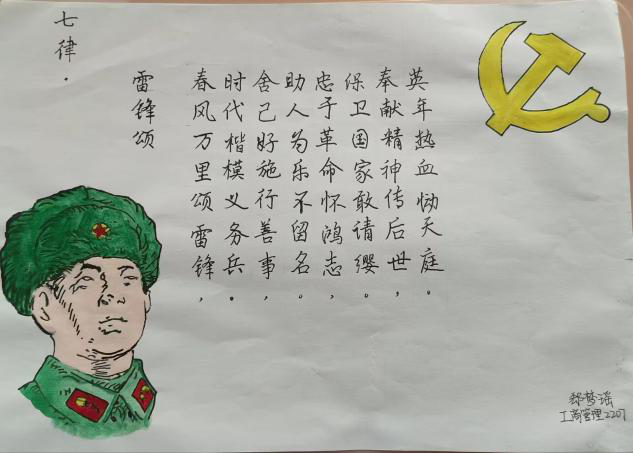 七律·
雷锋颂
春风万里颂雷锋，
时代楷模义务兵。
舍己好施行善事，
助人为乐不留名。
忠于革命怀鸿志，
保卫国家敢请缨。
奉献精神传后世，
英年热血恸天庭。
梦瑶
工商管理2207